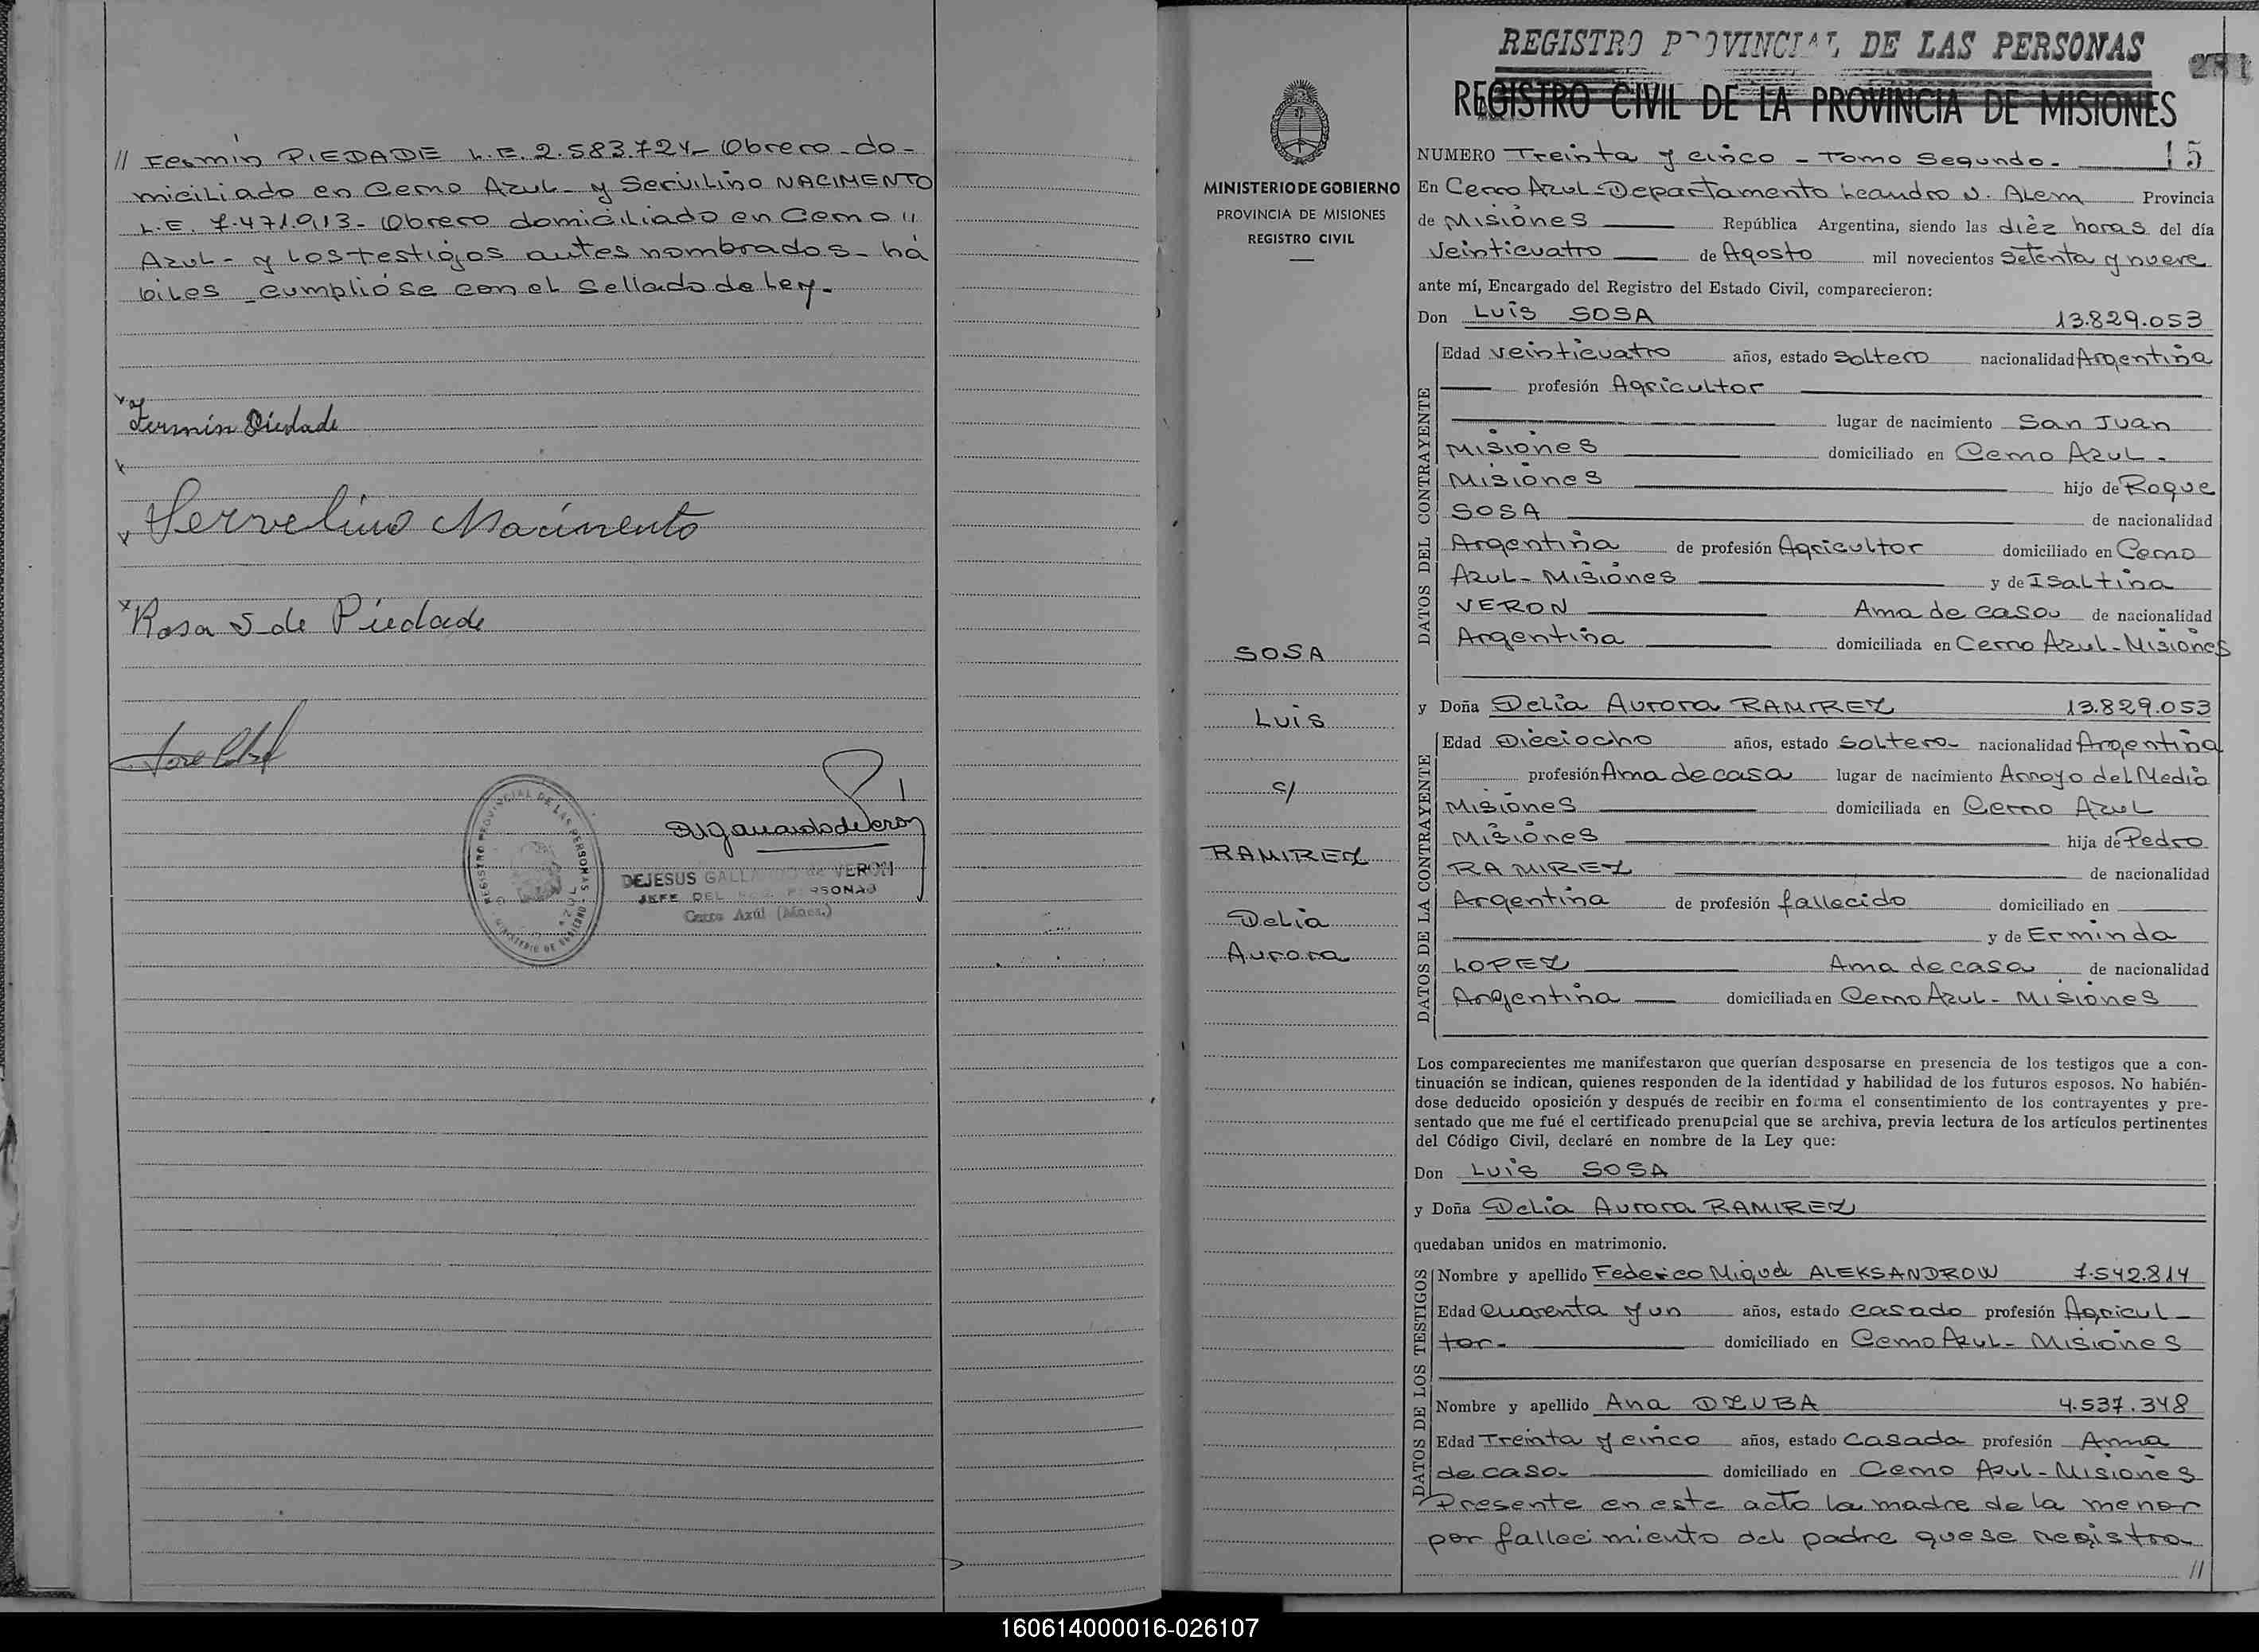 // Fermin PIEDADE L.E. 2.583.724- Obrero-do-
miciliado en Cerro Azul- y Servilino NACIMENTO
L.E. 7.471.913- Obrero domiciliado en Cerro "
Azul- y los testigos antes nombrados- há
biles -cumplióse con el sellado de Ley-
Fermin Piedade
Servelino Nacimento
Rosa S de Piedade
REGISTRO PROVINCIAL DE LAS PERSONAS
DEJESUS GALLARDO de VERON
JEFE DEL REG. PERSONAS
Cerro Azúl (Mnes.)
REGISTRO PROVINCIAL DE LAS PERSONAS
281
REGISTRO CIVIL DE LA PROVINCIA DE MISIONES
MINISTERIO DE GOBIERNO
PROVINCIA DE MISIONES
REGISTRO CIVIL
SOSA
Luis
c/
RAMIREZ
Delia
Aurora
NUMERO Treinta y cinco - Tomo Segundo- 15
En Cerro Azul-Departamento Leandro N. Alem Provincia
de Misiones República Argentina, siendo las diéz horas del día
Veinticuatro de Agosto mil novecientos Setenta y nueve
ante mí, Encargado del Registro del Estado Civil, comparecieron:
Don Luis SOSA 13.829.053
DATOS DEL CONTRAYENTE
Edad veinticuatro años, estado soltero nacionalidad Argentina
profesión Agricultor
lugar de nacimiento San Juan
Misiones domiciliado en Cerro Azul-
Misiones hijo de Roque
SOSA de nacionalidad
Argentina de profesión Agricultor domiciliado en Cerro
Azul- Misiones y de Isaltina
VERON Ama de casa de nacionalidad
Argentina domiciliada en Cerro Azul-Misiones
y Doña Delia Aurora RAMIREZ 13.829.053
DATOS DE LA CONTRAYENTE
Edad Dieciocho años, estado soltera nacionalidad Argentina
profesión Ama de casa lugar de nacimiento Arroyo del Medio
Misiones domiciliada en Cerro Azul
Misiones hija de Pedro
RAMIREZ de nacionalidad
Argentina de profesión fallecido domiciliado en
y de Erminda
LOPEZ Ama de casa de nacionalidad
Argentina domiciliada en Cerro Azul- Misiones
Los comparecientes me manifestaron que querían desposarse en presencia de los testigos que a con-
tinuación se indican, quienes responden de la identidad y habilidad de los futuros esposos. No habién-
dose deducido oposición y después de recibir en forma el consentimiento de los contrayentes y pre-
sentado que me fué el certificado prenupcial que se archiva, previa lectura de los artículos pertinentes
del Código Civil, declaré en nombre de la Ley que:
Don Luis SOSA
y Doña Delia Aurora RAMIREZ
quedaban unidos en matrimonio.
DATOS DE LOS TESTIGOS
Nombre y apellido Federico Miguel ALEKSANDROW 7.542.814
Edad Cuarenta y un años, estado casado profesión Agricul-
tor- domiciliado en Cerro Azul- Misiones
Nombre y apellido Ana DZUBA 4.537.348
Edad Treinta y cinco años, estado Casada profesión Ama
de casa- domiciliado en Cerro Azul-Misiones
Presente en este acto la madre de la menor
por fallecimiento del padre que se registra
//
160614000016-026107